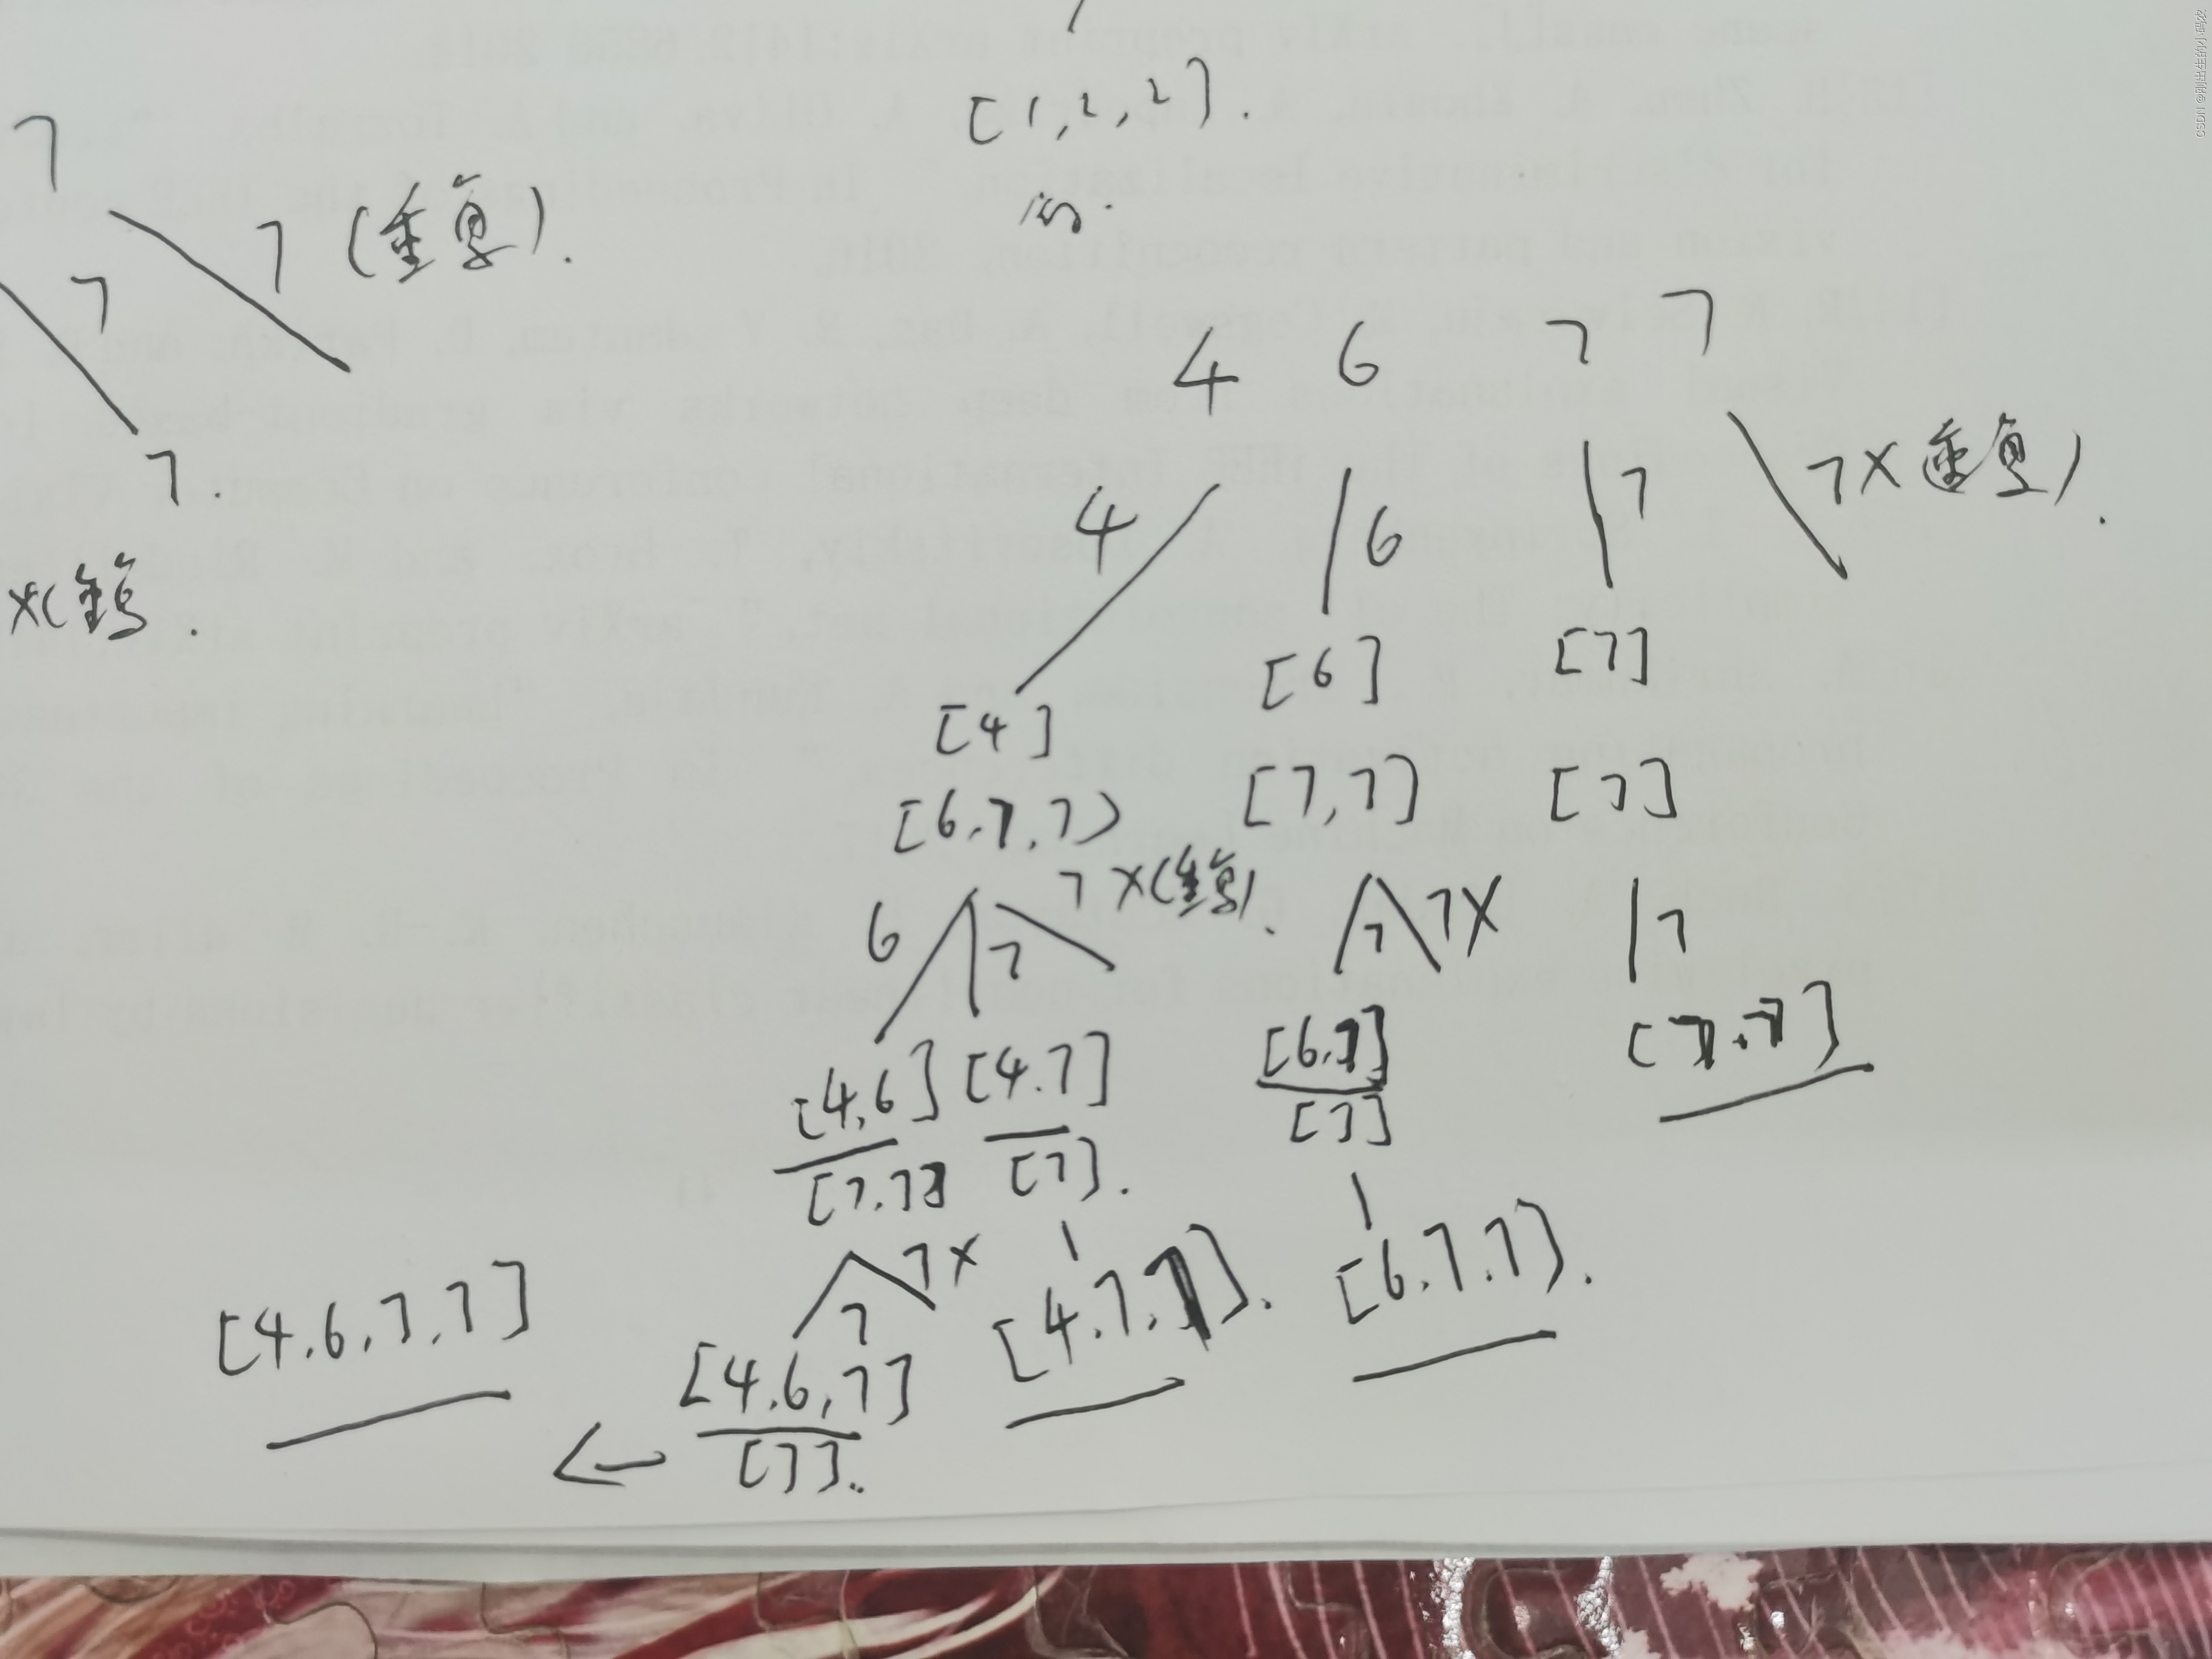 [1,2,2].
7
7 (重复).
7
7.
X(重复.
4 6 7 7
4 6 7 7X重复).
[4] [6] [7]
[6,7,7) [7,7] [7]
7X(重复).
6 7 7 7X 7
[4,6] [4.7] [6.7] [7.7]
[7.7] [7]. [7]
7 7X
[4.6.7.7] [4.6,7] [4.7.7]. [6.7.7).
[7].
CSDN @刚出生的小码农